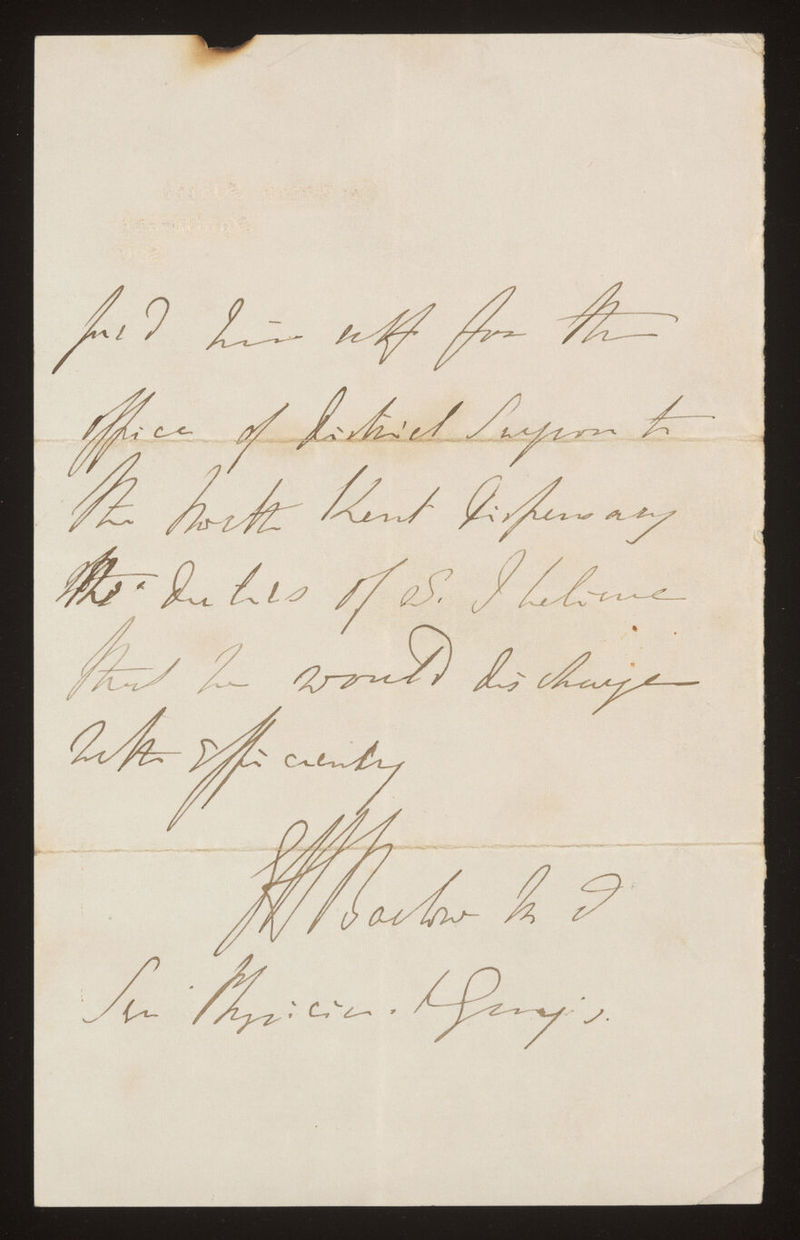 him self for the
office of District Surgeon to
the North Kent Dispensary
the duties of wh. I believe
that he would discharge
with Efficiency
GH Barlow M D
Sen Physician to Guy's.